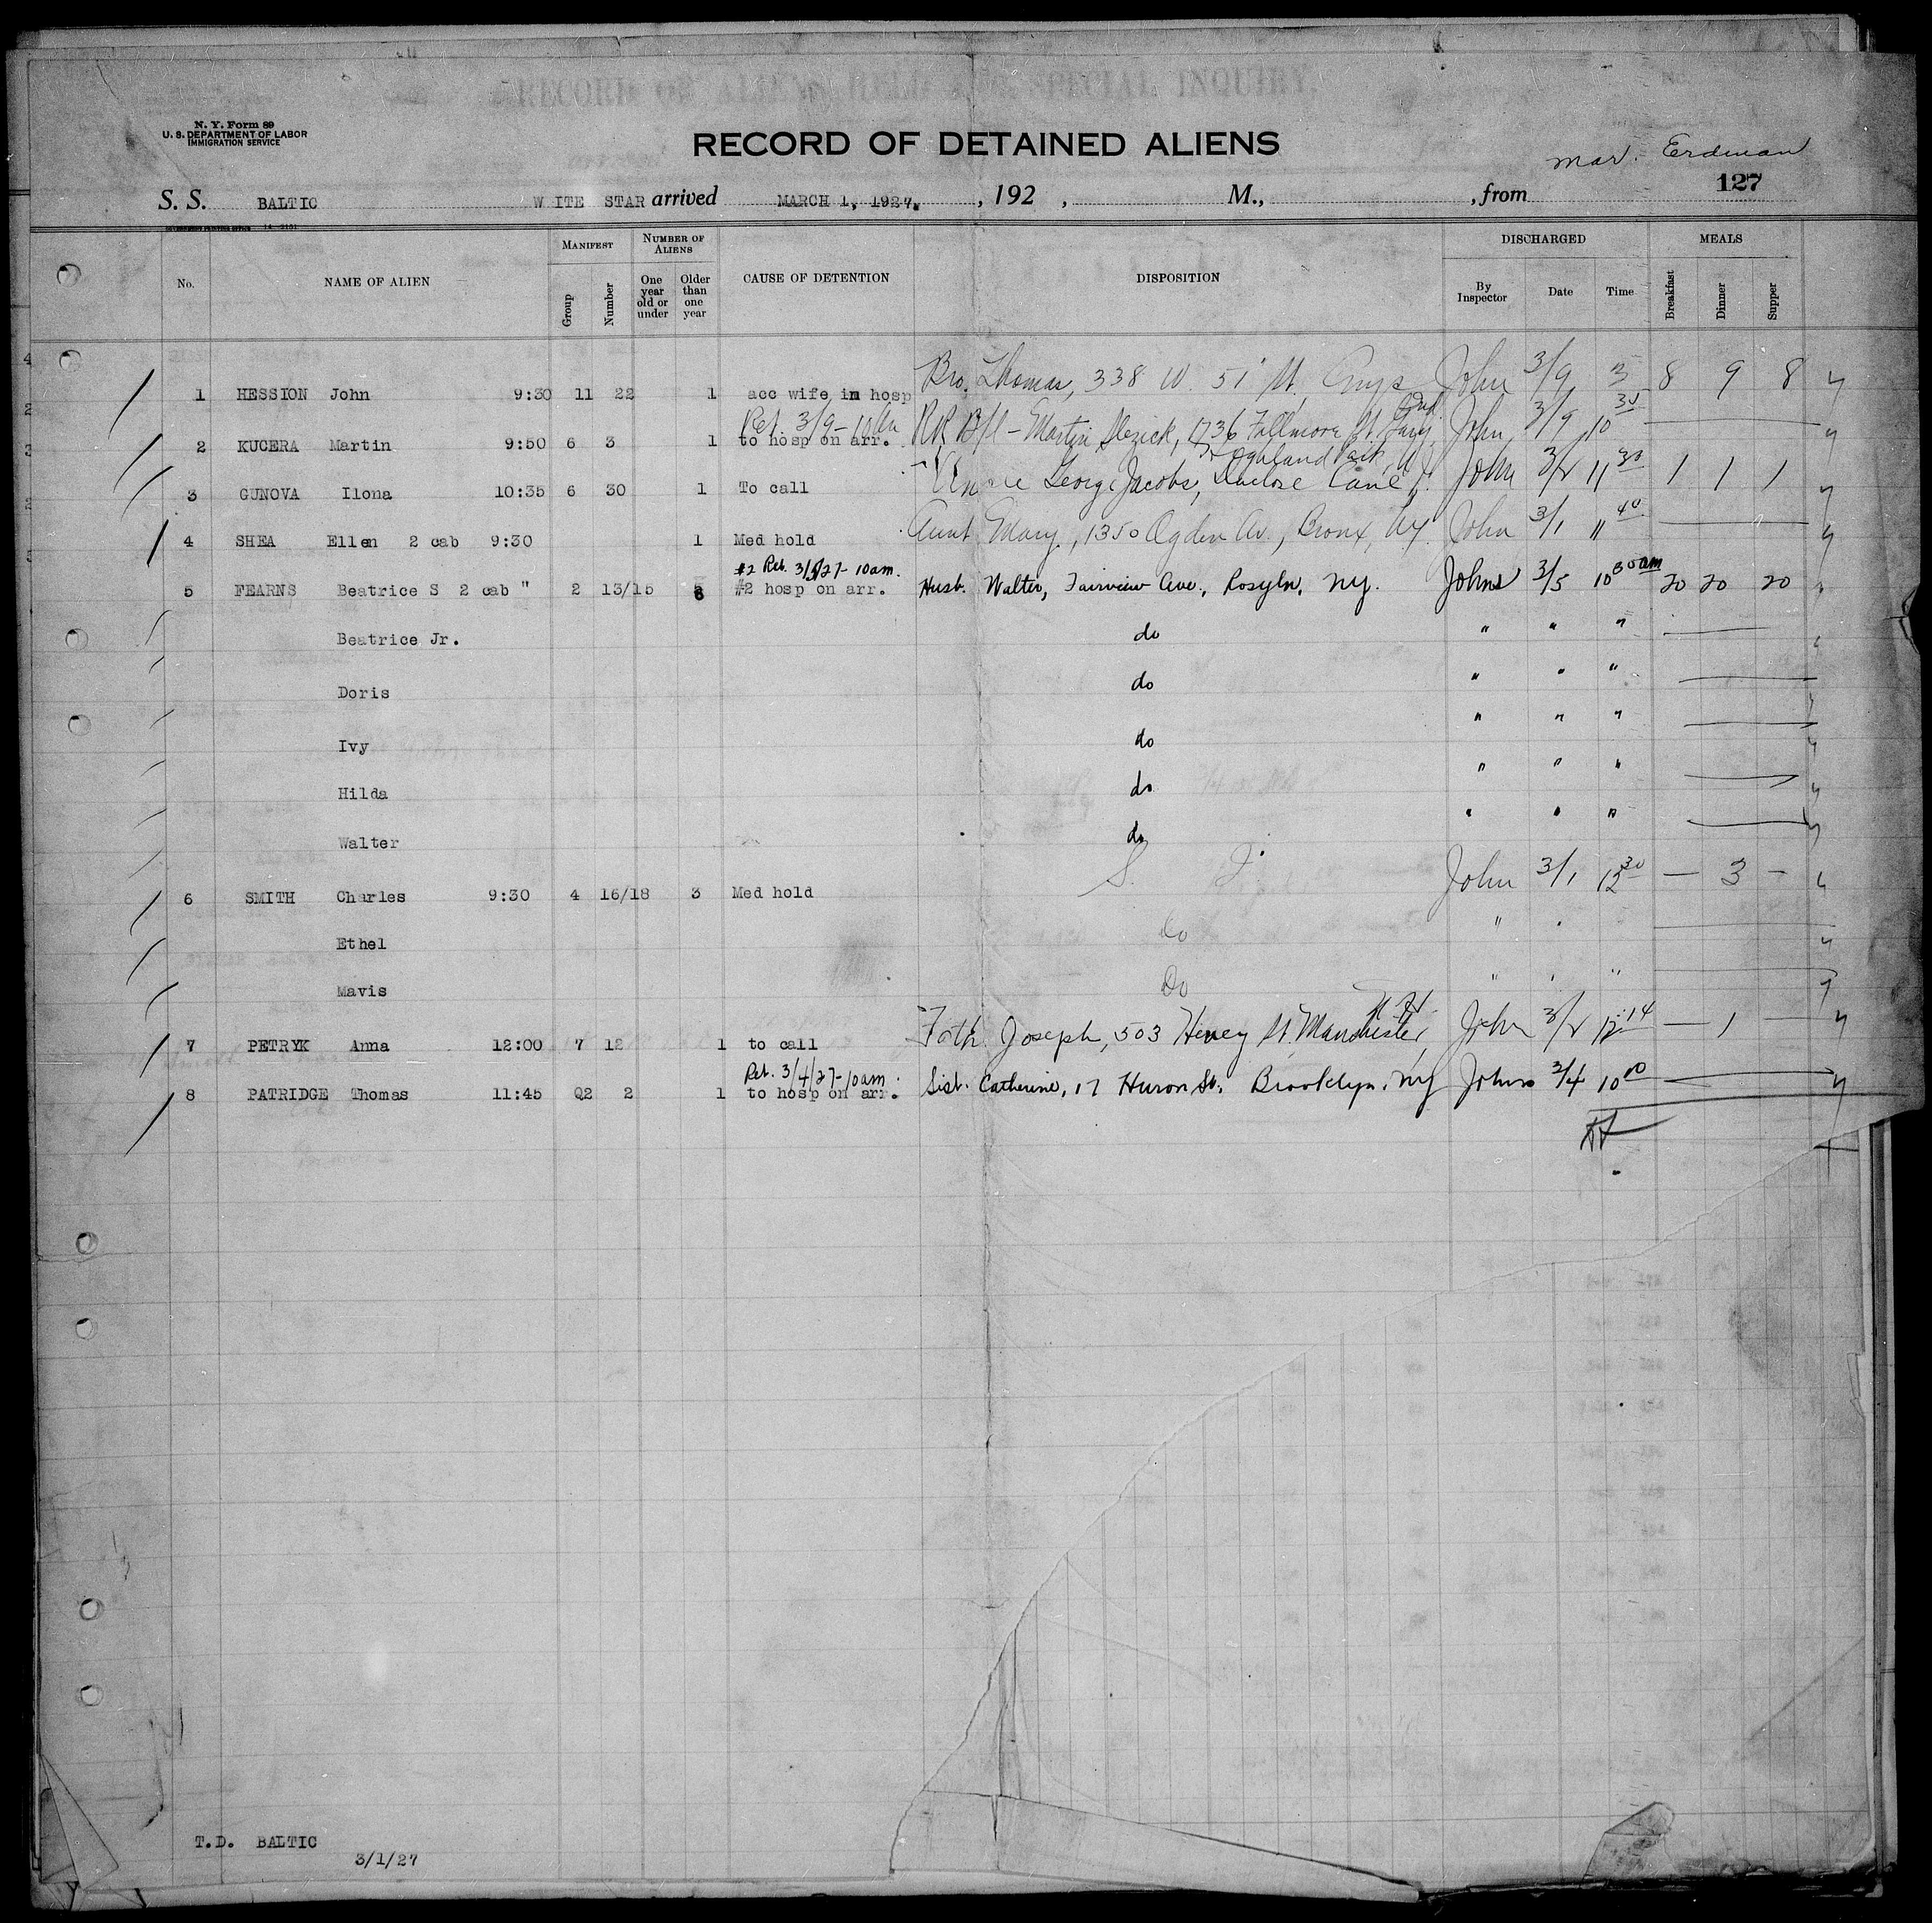 RECORD OF ALIENS HELD FOR SPECIAL INQUIRY.
N. Y. Form 89
U. S. DEPARTMENT OF LABOR
IMMIGRATION SERVICE
RECORD OF DETAINED ALIENS
Mar. Erdman
127
S. S. BALTIC W ITE STAR arrived MARCH 1, 1927. , 192 , M., , from
No. NAME OF ALIEN MANIFEST Group Number NUMBER OF ALIENS One year old or under Older than one year CAUSE OF DETENTION DISPOSITION DISCHARGED By Inspector Date Time MEALS Breakfast Dinner Supper
1 HESSION John 9:30 11 22 1 acc wife in hosp Bro. Thomas, 338 W. 51 St. John 3/9 3 8 9 8
Ret. 3/9-10 Ind.
2 KUCERA Martin 9:50 6 3 1 to hosp on arr. RR B/l - Martin Slezick, 1736 Fillmore St. Gary, John 3/9 10 30
Highland Park, NJ
3 GUNOVA Ilona 10:35 6 30 1 To call Uncle George Jacobs, John 3/2 11 30 1 1 1
4 SHEA Ellen 2 cab 9:30 1 Med hold Aunt Mary, 1350 Ogden Av., Bronx, NY John 3/1 " 40
#2 Ret. 3/5/27- 10am.
5 FEARNS Beatrice S 2 cab " 2 13/15 6 #2 hosp on arr. Husb. Walter, Fairview Ave., Rosyln, NY. Johns 3/5 10 30 am 20 20 20
Beatrice Jr. do " " "
Doris do " " "
Ivy do " " "
Hilda do " " "
Walter do " " "
6 SMITH Charles 9:30 4 16/18 3 Med hold S. I. John 3/1 12 30 — 3 —
Ethel Do "
Mavis Do " " "
N.H.
7 PETRYK Anna 12:00 7 12 1 to call Fath. Joseph, 503 Henry St. Manchester, John 3/2 12 14 — 1 —
Ret. 3/4/27-10am.
8 PATRIDGE Thomas 11:45 Q2 2 1 to hosp on arr. Sist. Catherine, 17 Huron St. Brooklyn, NY Johns 3/4 10 10
T.D. BALTIC
3/1/27